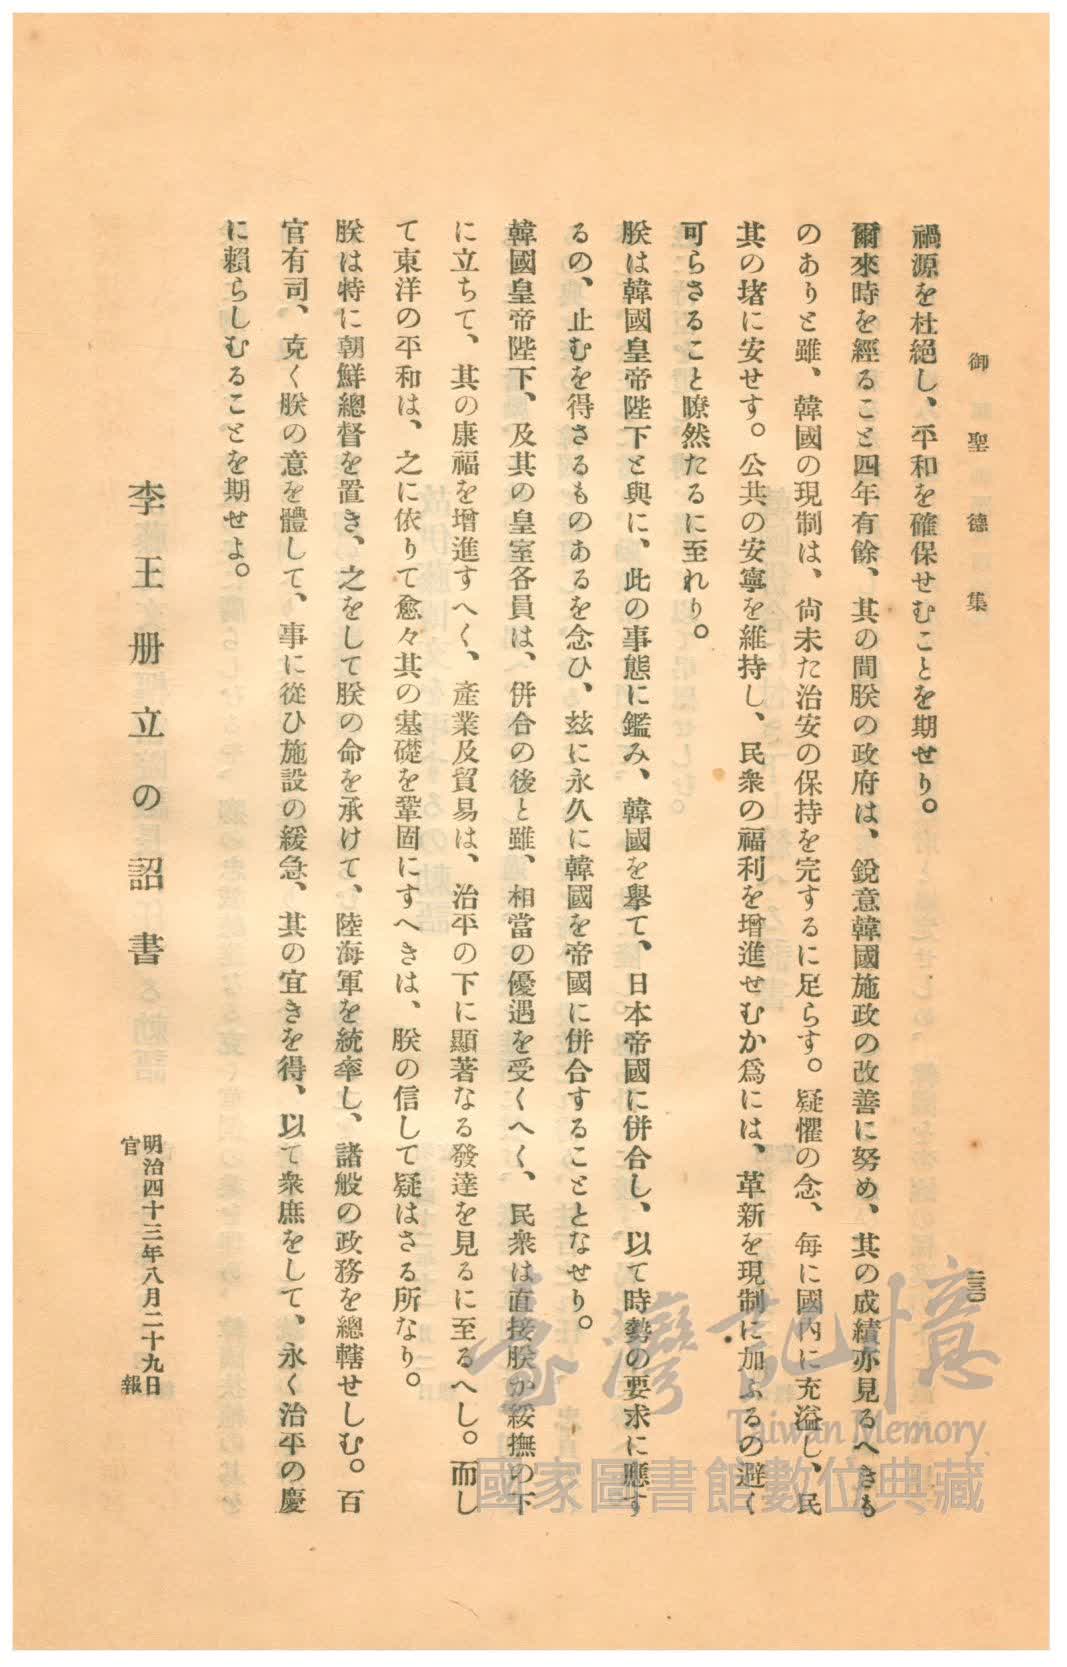 御聖德集
三〇
禍源を杜絕し、平和を確保せむことを期せり。
爾來時を經ること四年有餘、其の間朕の政府は、銳意韓國施政の改善に努め、其の成績亦見るへきも
のありと雖、韓國の現制は、尙未た治安の保持を完するに足らす。疑懼の念、每に國內に充溢し、民
其の堵に安せす。公共の安寧を維持し、民衆の福利を增進せむか爲には、革新を現制に加ふるの避く
可らさること瞭然たるに至れり。
朕は韓國皇帝陛下と與に、此の事態に鑑み、韓國を擧て、日本帝國に併合し、以て時勢の要求に應す
るの、止むを得さるものあるを念ひ、玆に永久に韓國を帝國に併合することとなせり。
韓國皇帝陛下、及其の皇室各員は、併合の後と雖、相當の優遇を受くへく、民衆は直接朕か綏撫の下
に立ちて、其の康福を增進すへく、產業及貿易は、治平の下に顯著なる發達を見るに至るへし。而し
て東洋の平和は、之に依りて愈々其の基礎を鞏固にすへきは、朕の信して疑はさる所なり。
朕は特に朝鮮總督を置き、之をして朕の命を承けて、陸海軍を統率し、諸般の政務を總轄せしむ。百
官有司、克く朕の意を體して、事に從ひ施設の緩急、其の宜きを得、以て衆庶をして、永く治平の慶
に賴らしむることを期せよ。
李王册立の詔書
明治四十三年八月二十九日
官報
臺灣記憶
Taiwan Memory
國家圖書館數位典藏